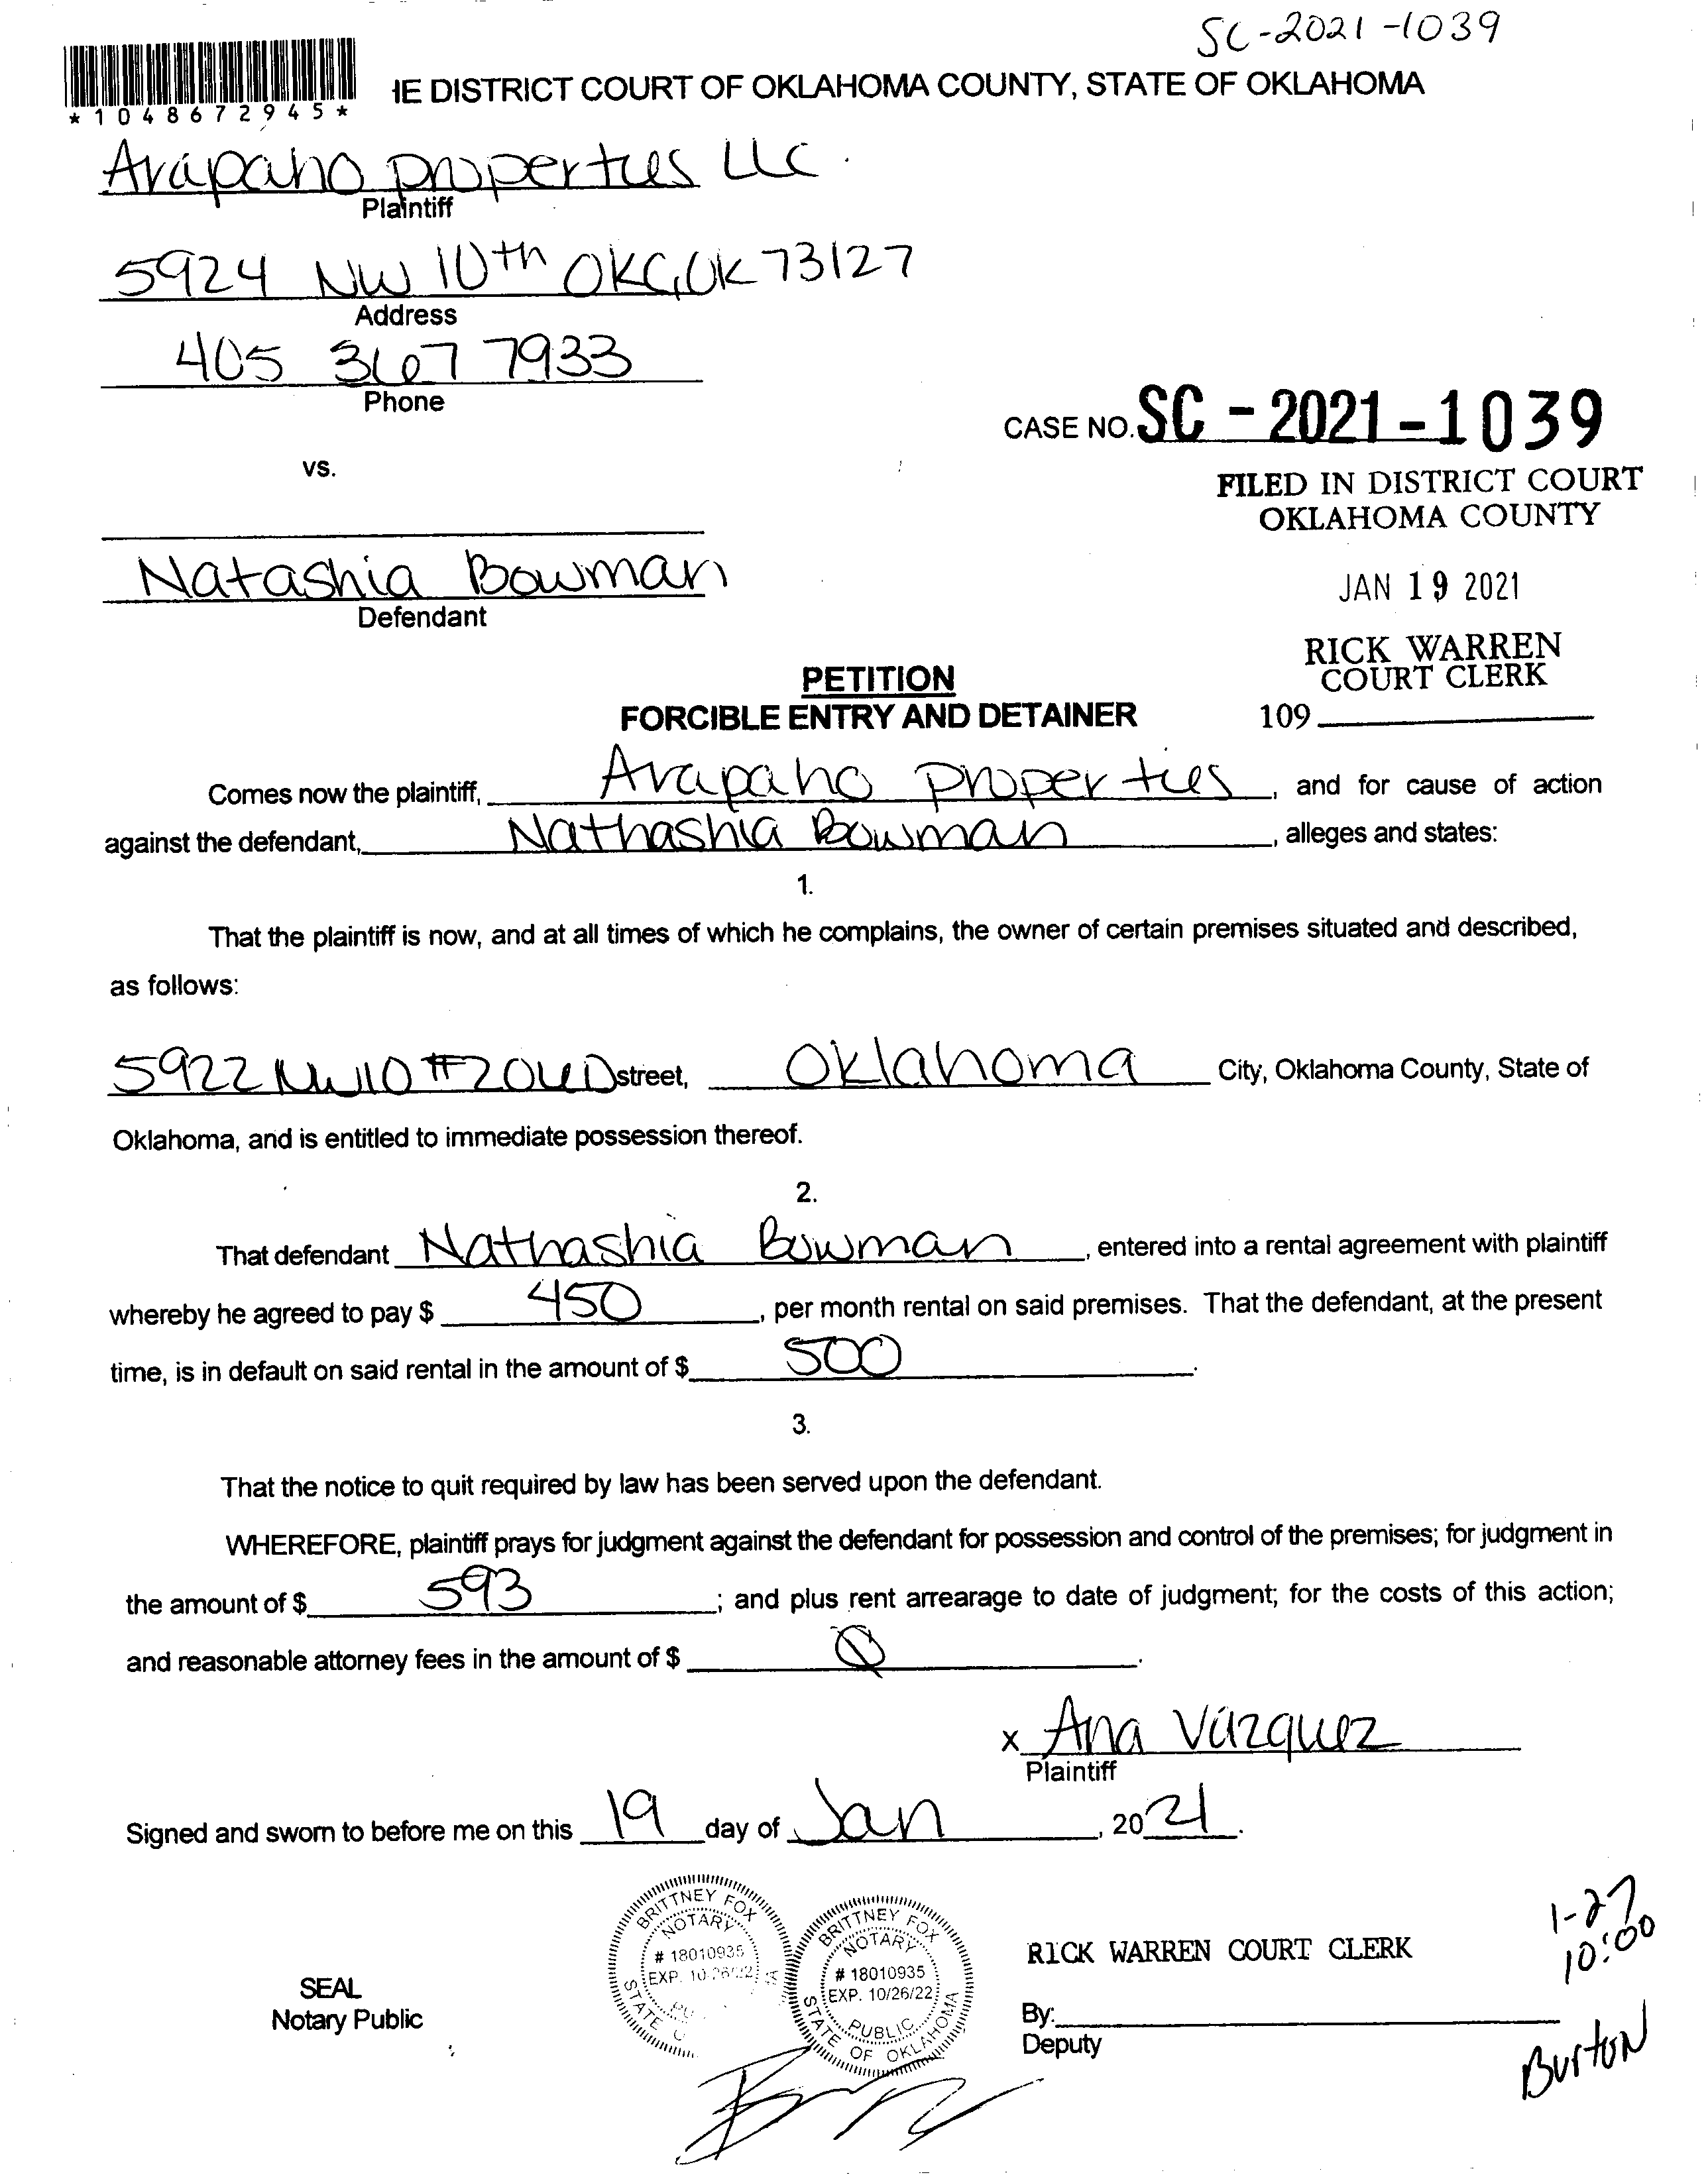 SC-2021-1039
*1048672945*
IE DISTRICT COURT OF OKLAHOMA COUNTY, STATE OF OKLAHOMA
Arapaho properties LLC.
Plaintiff
5924 NW 10th OKC, OK 73127
Address
405 367 7933
Phone
CASE NO. SC-2021-1039
vs.
FILED IN DISTRICT COURT
OKLAHOMA COUNTY
Natashia Bowman
Defendant
JAN 19 2021
RICK WARREN
COURT CLERK
109
PETITION
FORCIBLE ENTRY AND DETAINER
Comes now the plaintiff, Arapaho properties, and for cause of action
against the defendant, Nathashia Bowman, alleges and states:
1.
That the plaintiff is now, and at all times of which he complains, the owner of certain premises situated and described,
as follows:
5922 NW 10 street, Oklahoma City, Oklahoma County, State of
Oklahoma, and is entitled to immediate possession thereof.
2.
That defendant Nathashia Bowman, entered into a rental agreement with plaintiff
whereby he agreed to pay $ 450, per month rental on said premises. That the defendant, at the present
time, is in default on said rental in the amount of $ 500.
3.
That the notice to quit required by law has been served upon the defendant.
WHEREFORE, plaintiff prays for judgment against the defendant for possession and control of the premises; for judgment in
the amount of $ 593; and plus rent arrearage to date of judgment; for the costs of this action;
and reasonable attorney fees in the amount of $ 0.
x Ana Vazquez
Plaintiff
Signed and sworn to before me on this 19 day of Jan, 2021.
BRITTNEY FOX
NOTARY
# 18010935
EXP. 10/26/22
STATE
BRITTNEY FOX
NOTARY
# 18010935
EXP. 10/26/22
PUBLIC
STATE OF OKLAHOMA
SEAL
Notary Public
RICK WARREN COURT CLERK
By:
Deputy
1-27
10:00
Burton